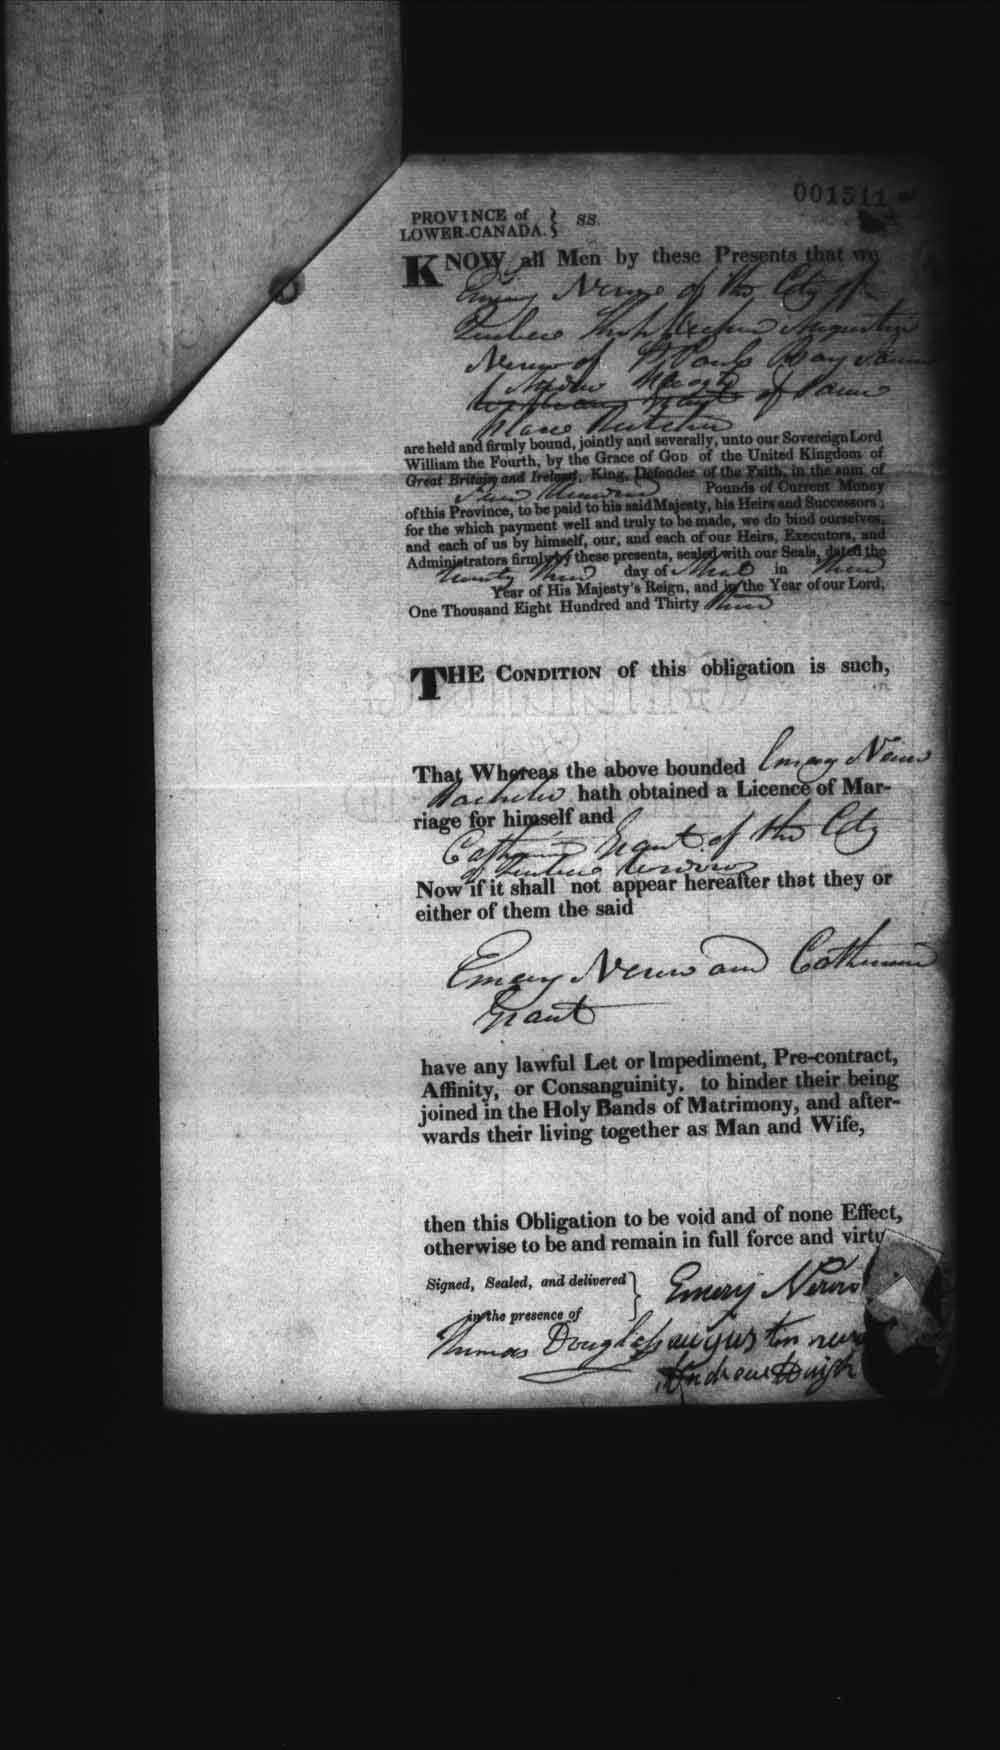 001511
PROVINCE of } ss.
LOWER-CANADA. }
KNOW all Men by these Presents that we
Emery Nerro of the City of
Quebec Augustin
Nerro of St Pauls Bay Same
Andrew
of Same
place
are held and firmly bound, jointly and severally, unto our Sovereign Lord
William the Fourth, by the Grace of GOD of the United Kingdom of
Great Britain and Ireland, King, Defender of the Faith, in the sum of
Pounds of Current Money
of this Province, to be paid to his said Majesty, his Heirs and Successors ;
for the which payment well and truly to be made, we do bind ourselves,
and each of us by himself, our, and each of our Heirs, Executors, and
Administrators firmly by these presents, sealed with our Seals, dated the
Twenty third day of in Third
Year of His Majesty's Reign, and in the Year of our Lord,
One Thousand Eight Hundred and Thirty three
THE CONDITION of this obligation is such,
That Whereas the above bounded Emery Nerro
Bachelor hath obtained a Licence of Mar-
riage for himself and
Catherine Grant of the City
of Quebec
Now if it shall not appear hereafter that they or
either of them the said
Emery Nerro and Catherine
Grant
have any lawful Let or Impediment, Pre-contract,
Affinity, or Consanguinity, to hinder their being
joined in the Holy Bands of Matrimony, and after-
wards their living together as Man and Wife,
then this Obligation to be void and of none Effect,
otherwise to be and remain in full force and virtu
Signed, Sealed, and delivered } Emery Nerro
in the presence of
Thomas Douglass augustin
Andrew